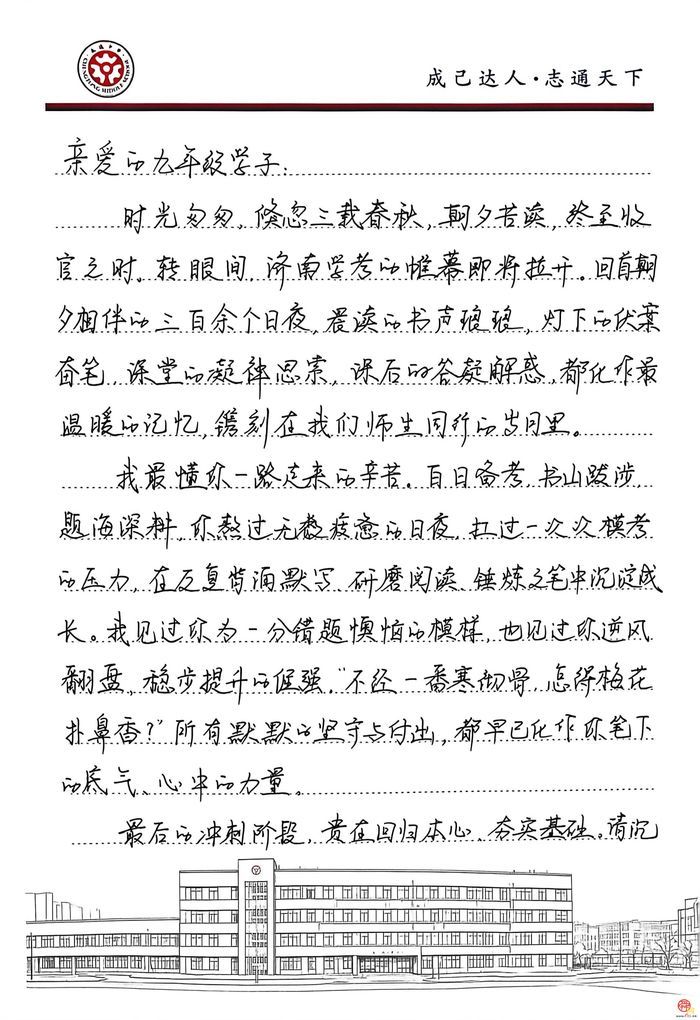 成己达人·志通天下
亲爱的九年级学子：
时光匆匆，倏忽三载春秋，朝夕苦读，终至收
官之时。转眼间，济南学考的帷幕即将拉开。回首朝
夕相伴的三百余个日夜，晨读的书声琅琅，灯下的伏案
奋笔，课堂的凝神思索，课后的答疑解惑，都化作最
温暖的记忆，镌刻在我们师生同行的岁月里。
我最懂你一路走来的辛苦。百日备考，书山跋涉，
题海深耕，你熬过无数疲惫的日夜，扛过一次次模考
的压力，在反复背诵默写、研磨阅读、锤炼文笔中沉淀成
长。我见过你为一分错题懊恼的模样，也见过你逆风
翻盘、稳步提升的倔强。"不经一番寒彻骨，怎得梅花
扑鼻香？"所有默默的坚守与付出，都早已化作你笔下
的底气、心中的力量。
最后的冲刺阶段，贵在回归本心、夯实基础。请沉